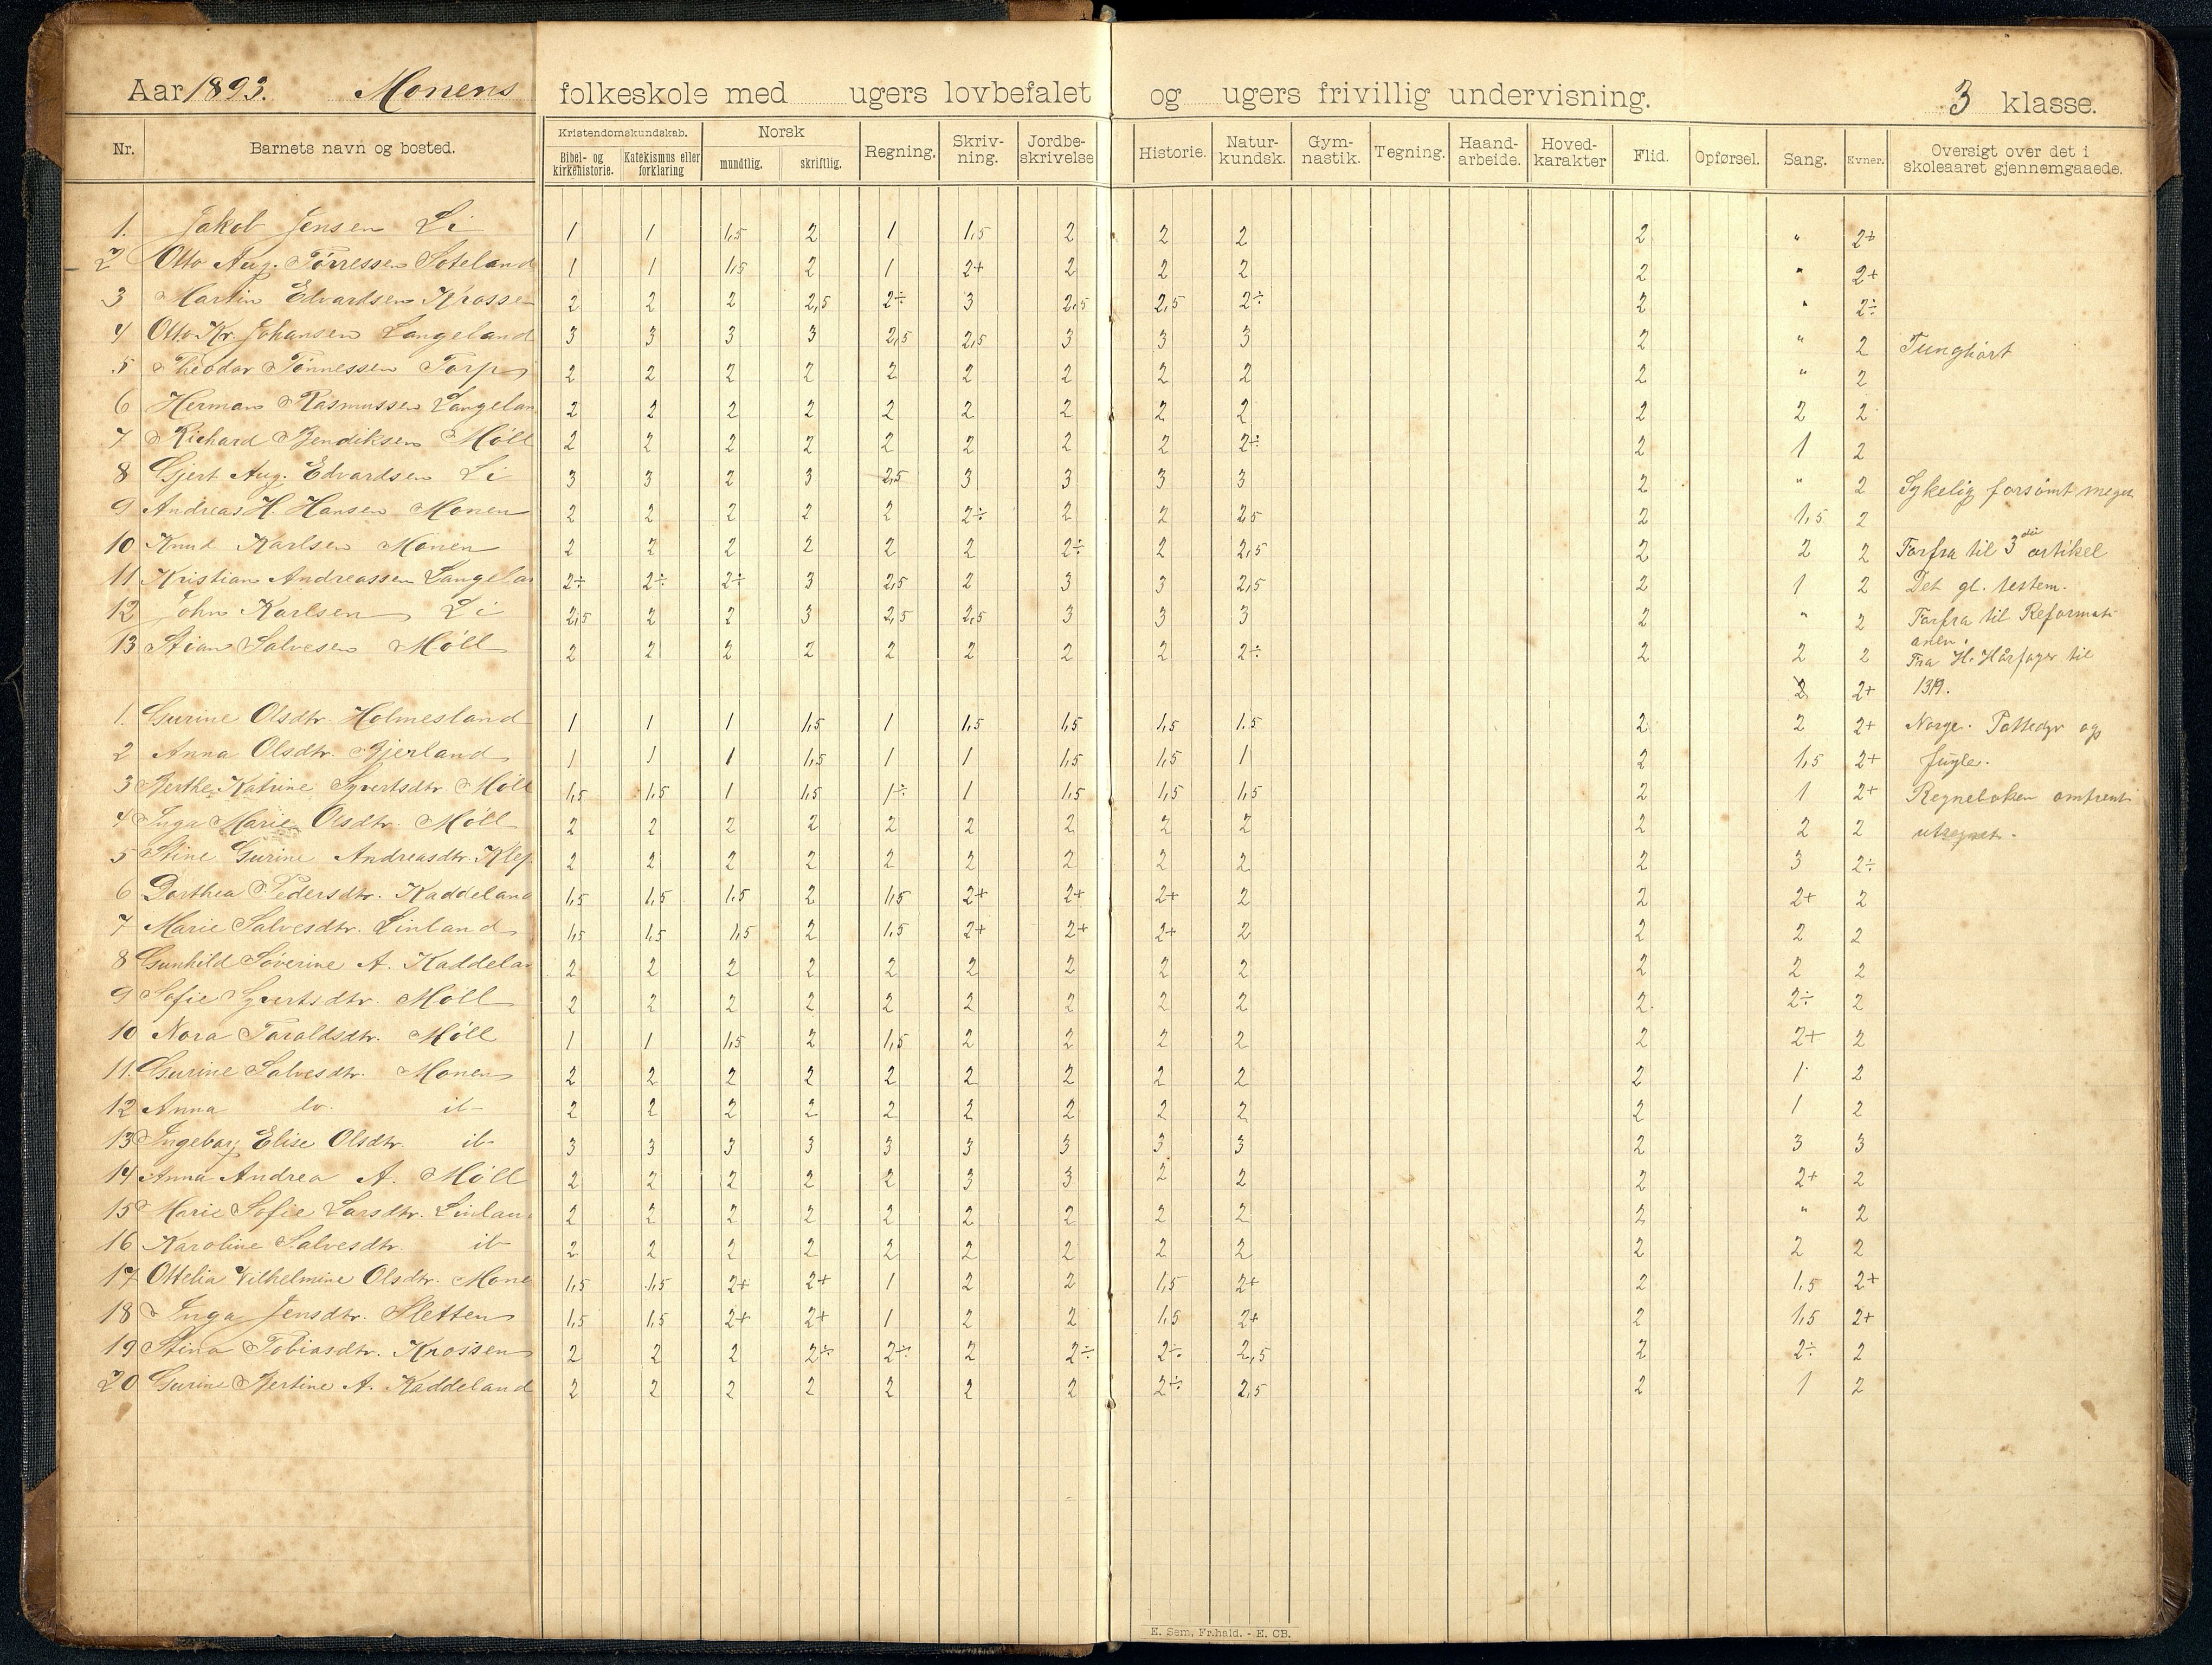 Aar 1893. Monens folkeskole med ugers lovbefalet og ugers frivillig undervisning. 3 klasse.
Nr. Barnets navn og bosted. Kristendomskundskab. Bibel- og kirkehistorie. Katekismus eller forklaring Norsk mundtlig. skriftlig. Regning. Skriv-ning. Jordbe-skrivelse Historie. Natur-kundsk. Gym-nastik. Tegning. Haand-arbeide. Hoved-karakter Flid. Opførsel. Sang. Evner. Oversigt over det i skoleaaret gjennemgaaede.
1. Jakob Jensen Li 1 1 1,5 2 1 1,5 2 2 2 2 " 2+
2 Otto Aug. Tørressen Soteland 1 1 1,5 2 1 2+ 2 2 2 2 " 2+
3 Martin Edvardsen Krosse 2 2 2 2,5 2÷ 3 2,5 2,5 2÷ 2 " 2÷
4 Otto Kr. Johansen Langeland 3 3 3 3 2,5 2,5 3 3 3 2 " 2 Tunghørt
5 Theodor Tønnessen Torp 2 2 2 2 2 2 2 2 2 2 " 2
6 Herman Rasmussen Langelan 2 2 2 2 2 2 2 2 2 2 2 2
7 Richard Bendiksen Møll 2 2 2 2 2 2 2 2 2÷ 2 1 2
8 Gjert Aug. Edvardsen Li 3 3 2 3 2,5 3 3 3 3 2 " 2 Sykelig forsømt meget
9 Andreas H. Hansen Monen 2 2 2 2 2 2÷ 2 2 2,5 2 1,5 2
10 Knud Karlsen Monen 2 2 2 2 2 2 2÷ 2 2,5 2 2 2 Forfra til 3die artikel
11 Kristian Andreassen Langelan 2÷ 2÷ 2÷ 3 2,5 2 3 3 2,5 2 1 2 Det gl. testem.
12 John Karlsen Li 2,5 2 2 3 2,5 2,5 3 3 3 2 " 2 Forfra til Reformati
onen.
13 Stian Salvesen Møll 2 2 2 2 2 2 2 2 2÷ 2 2 2 Fra H. Hårfager til
2 2+ 1319.
1. Gurine Olsdtr. Holmesland 1 1 1 1,5 1 1,5 1,5 1,5 1.5 2 2 2+ Norge. Pattedyr og
2 Anna Olsdtr. Bjerland 1 1 1 1,5 1 1 1,5 1,5 1 2 1,5 2+ fugle.
3 Berthe Katrine Syvertsdtr Møll 1,5 1,5 1 1,5 1÷ 1 1,5 1,5 1,5 2 1 2+ Regneboken omtrent
4 Inga Marie Olsdtr. Møll 2 2 2 2 2 2 2 2 2 2 2 2 utregnet.
5 Stine Gurine Andreasdtr. Klep 2 2 2 2 2 2 2 2 2 2 3 2÷
6 Dorthea Pedersdtr. Kaddeland 1,5 1,5 1,5 2 1,5 2+ 2+ 2+ 2 2 2+ 2
7 Marie Salvesdtr. Linland 1,5 1,5 1,5 2 1.5 2+ 2+ 2+ 2 2 2 2
8 Gunhild Søverine A. Kaddelan 2 2 2 2 2 2 2 2 2 2 2 2
9 Sofie Syvertsdtr. Møll 2 2 2 2 2 2 2 2 2 2. 2÷ 2
10 Nora Taraldsdtr. Møll 1 1 1,5 2 1,5 2 2 2 2 2 2+ 2
11. Gurine Salvesdtr. Monen 2 2 2 2 2 2 2 2 2 2 1 2
12 Anna do. ib 2 2 2 2 2 2 2 2 2 2 1 2
13 Ingeborg Elise Olsdtr. ib 3 3 3 3 3 3 3 3 3 2 3 3
14 Anna Andrea A. Møll 2 2 2 2 2 3 3 2 2 2 2+ 2
15 Marie Sofie Larsdtr. Linlan 2 2 2 2 2 2 2 2 2 2 " 2
16 Karoline Salvesdtr. ib 2 2 2 2 2 2 2 2 2 2 2 2
17 Ottelia Vilhelmine Olsdtr. Mone 1,5 1,5 2+ 2+ 1 2 2 1,5 2+ 2 1,5 2+
18 Inga Jensdtr. Sletten 1,5 1,5 2+ 2+ 1 2 2 1,5 2+ 2 1,5 2+
19 Stina Tobiasdtr. Krossen 2 2 2 2÷ 2÷ 2 2÷ 2÷ 2,5 2 2÷ 2
20 Gurine Bertine A. Kaddeland 2 2 2 2 2 2 2 2÷ 2,5 2 1 2
E. Sem, Fr.hald. - E. CB.